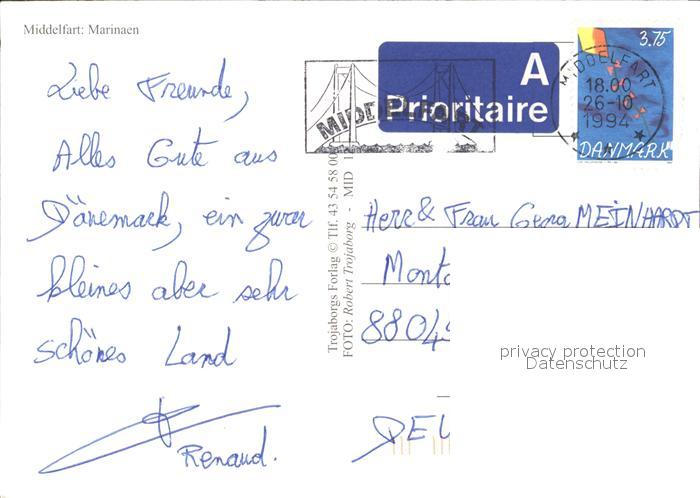 Middelfart: Marinaen
Liebe Freunde,
Alles Gute aus
Dänemark, ein zwar
kleines aber sehr
schönes Land
Renaud.
MIDDELFART
A
Prioritaire
3.75
MIDDELFART
18.00
26-10
1994
DANMARK
Trojaborgs Forlag © Tlf. 43 54 58 00
FOTO: Robert Trojaborg - MID 1
Herr & Frau Gena MEINHARDT
Monto
88049
DEU
privacy protection
Datenschutz